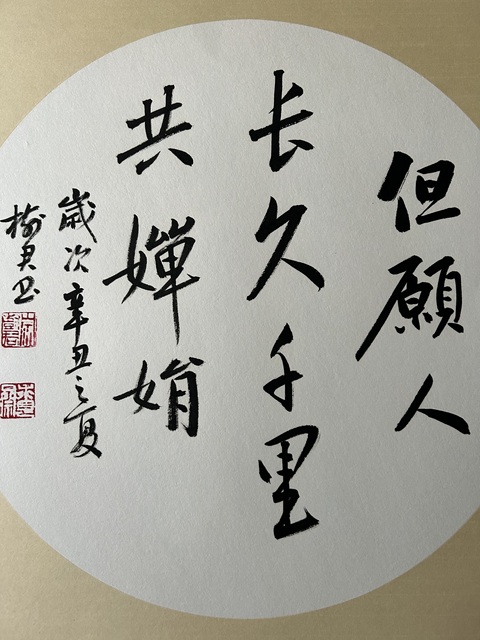 但願人
长久千里
共嬋娟
歲次辛丑之夏
榆君书